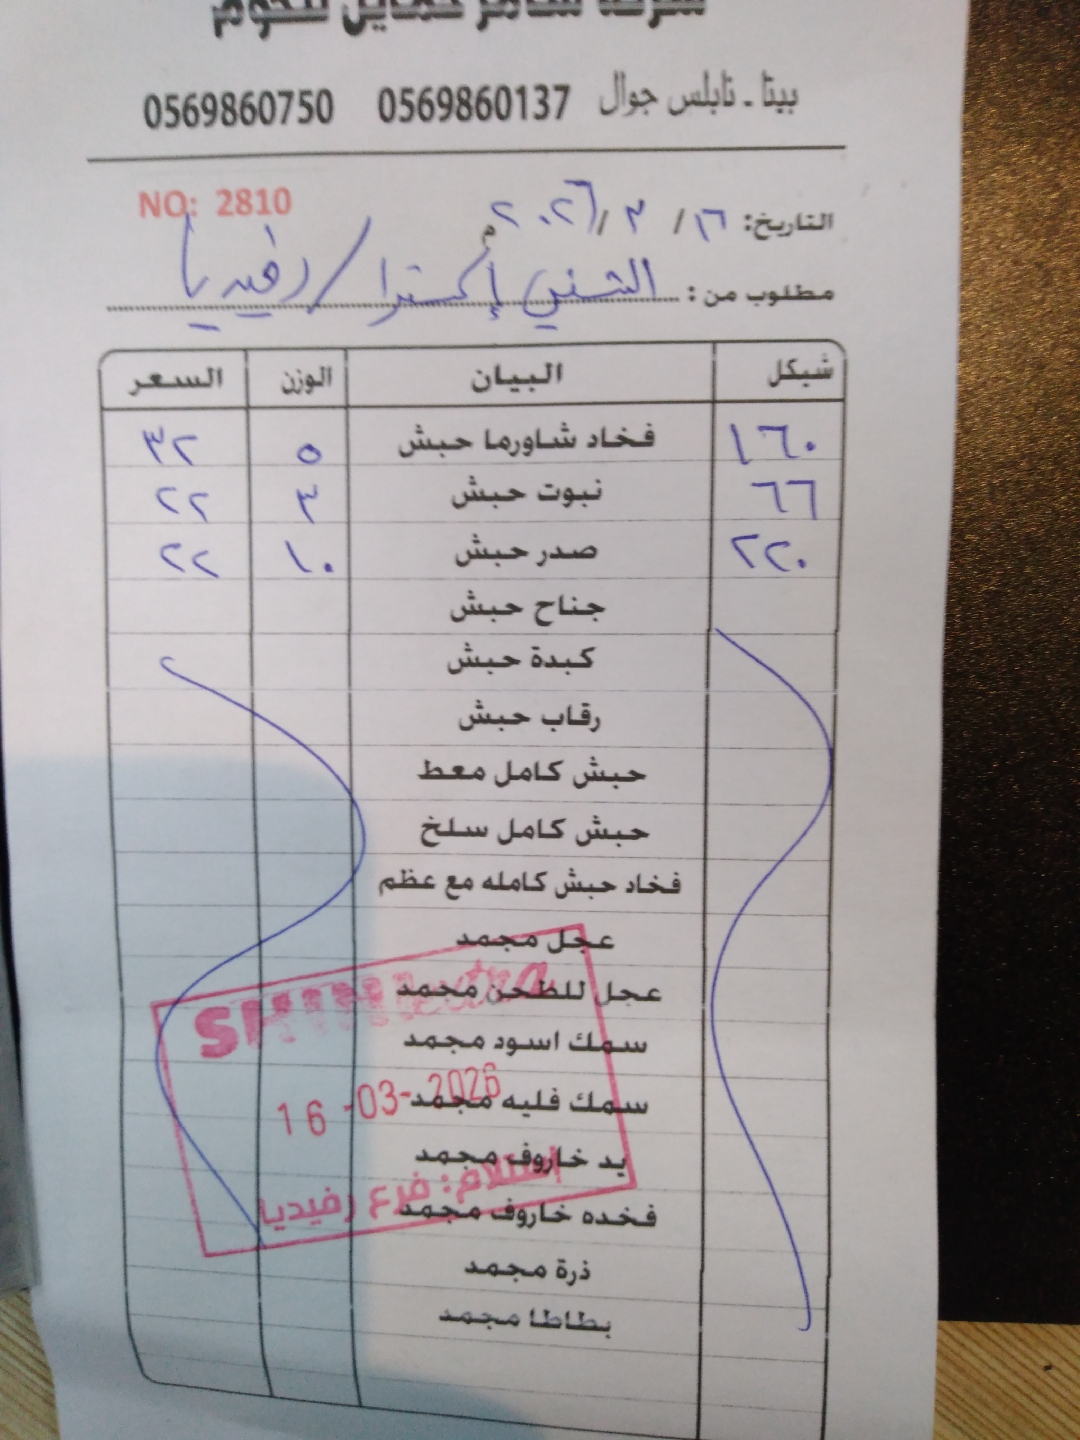 شركة سامر حمايل للحوم
بيتا - نابلس جوال 0569860137 0569860750
NO: 2810
التاريخ: ١٦ / ٣ / ٢٠٢٦م
مطلوب من: الشني إكسترا / رفيديا
شيكل البيان الوزن السعر
١٦٠ فخاد شاورما حبش ٥ ٣٢
٦٦ نبوت حبش ٣ ٢٢
٢٢٠ صدر حبش ١٠ ٢٢
جناح حبش
كبدة حبش
رقاب حبش
حبش كامل معط
حبش كامل سلخ
فخاد حبش كامله مع عظم
عجل مجمد
عجل للطحن مجمد
سمك اسود مجمد
سمك فليه مجمد
يد خاروف مجمد
فخده خاروف مجمد
ذرة مجمد
بطاطا مجمد
16 -03- 2026
إستلام: فرع رفيديا